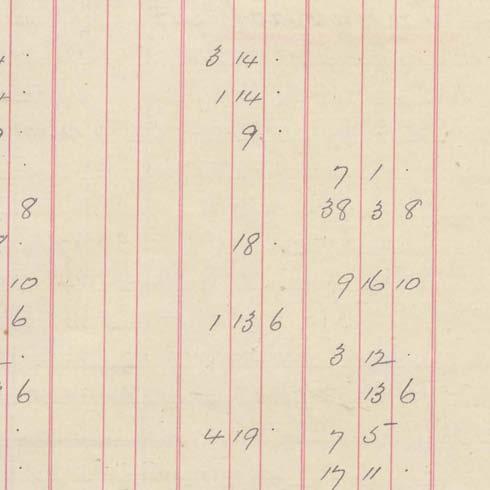 3 14 ·
1 14 ·
9 ·
· 7 1 ·
8 38 3 8
· 18 ·
10 9 16 10
6 1 13 6
· 3 12 ·
6 13 6
· 4 19 · 7 5
· 17 11 ·